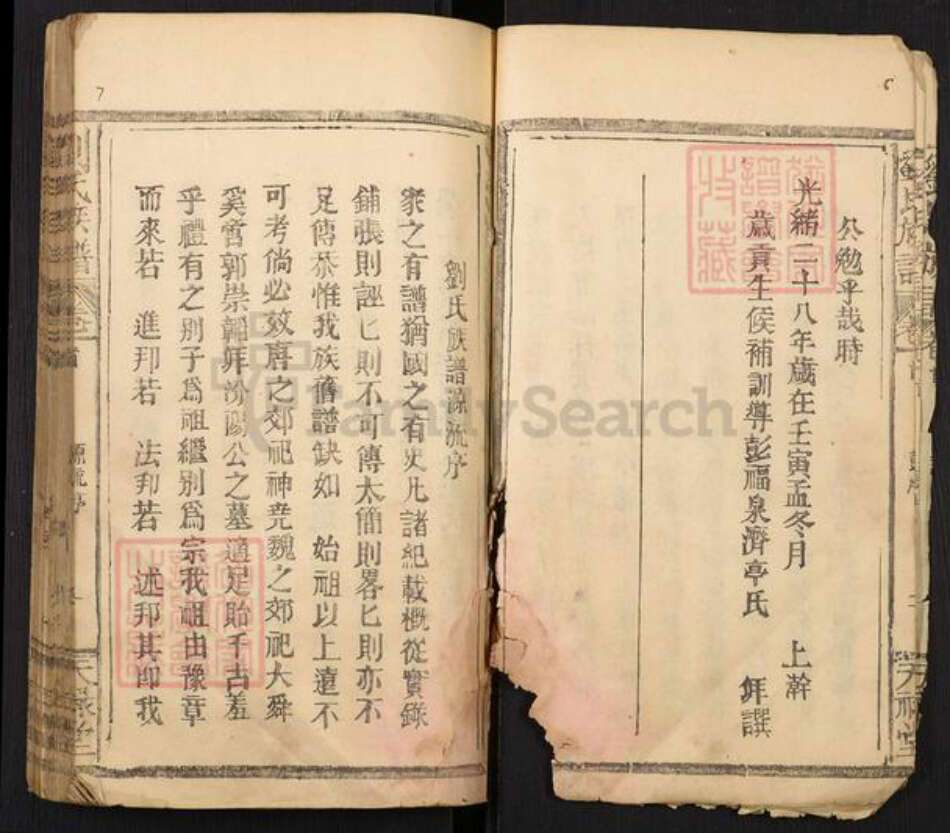 公勉乎哉時
光緒二十八年歲在壬寅孟冬月 上澣
歲貢生侯補訓導彭福泉濟亭氏 拜譔
劉氏族譜源流序
家之有譜猶國之有史凡諸紀載概從實錄
鋪張則誣匕則不可傳太簡則畧匕則亦不
足傳恭惟我族舊譜缺如 始祖以上遠不
可考倘必效唐之郊祀神堯魏之郊祀大舜
奚啻郭崇韜拜汾陽公之墓適足貽千古羞
乎禮有之別子爲祖繼別爲宗我祖由豫章
而來若 進邦若 法邦若 述邦其即我
劉氏族譜
卷首
源流序
天祿堂
7
FamilySearch